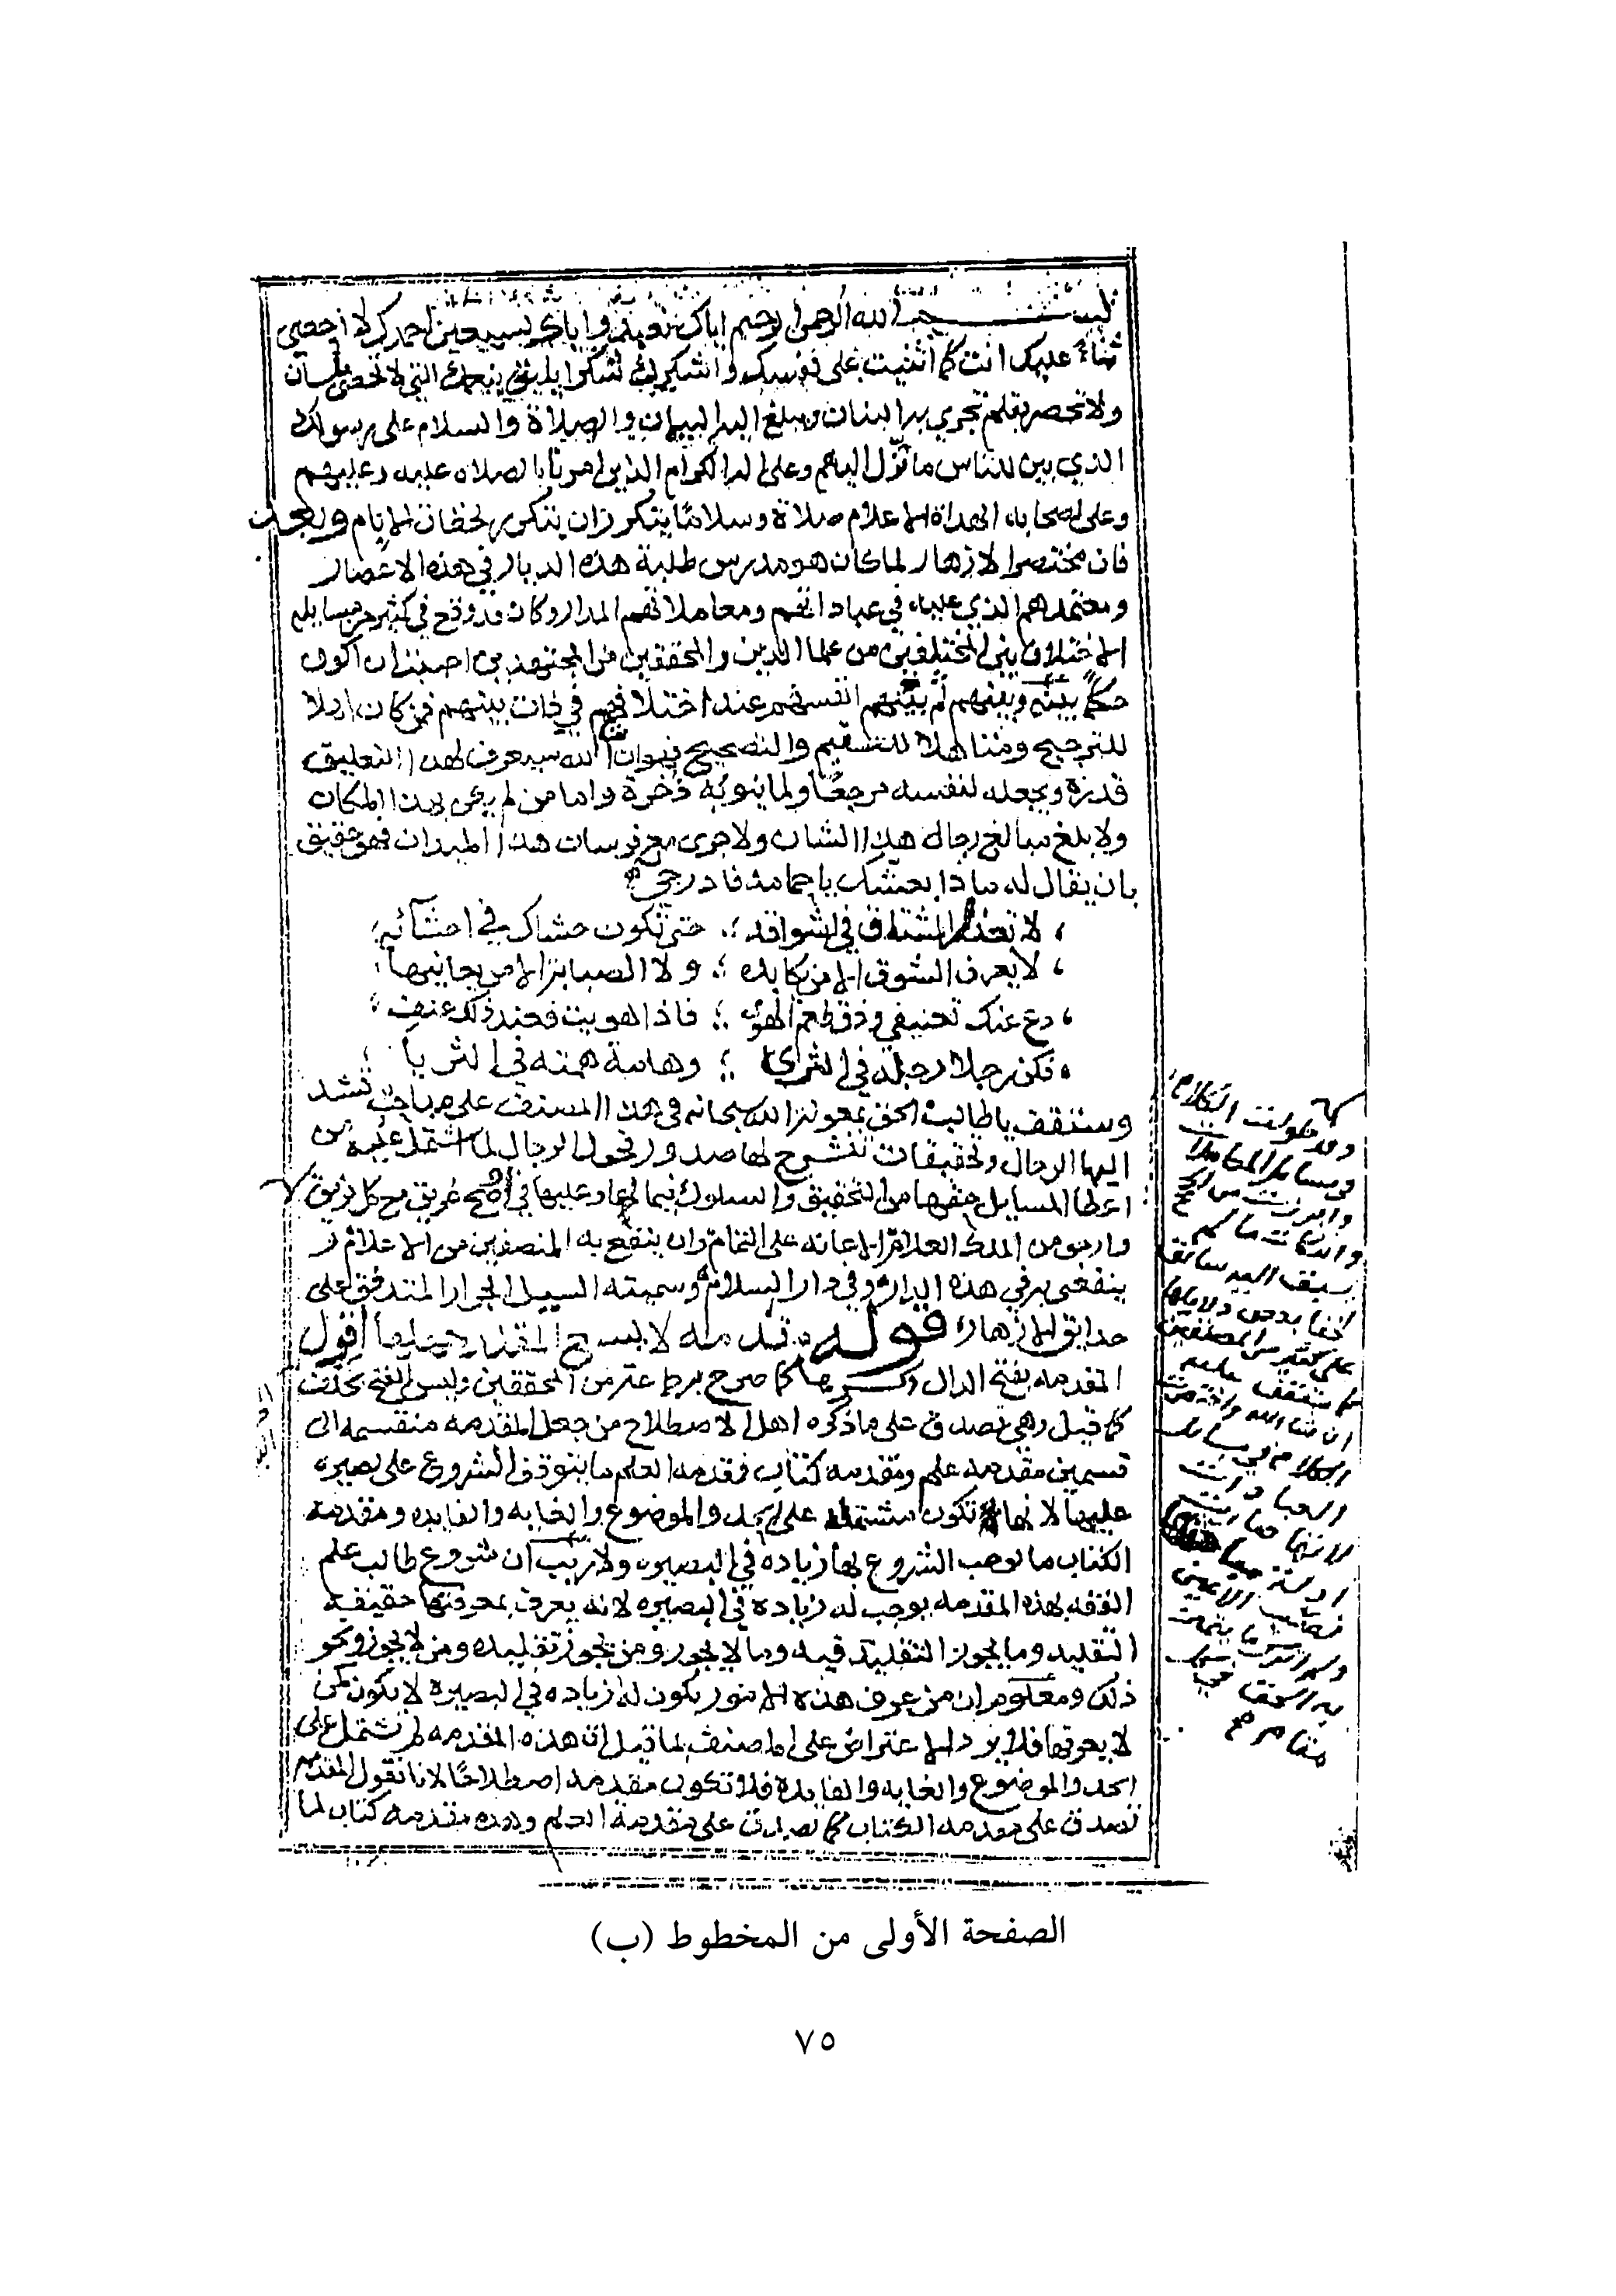 بسم الله الرحمن الرحيم اياك نعبد واياك نستعين احمدك لا احصي
ثناء عليك انت كما اثنيت على نفسك واشكرك شكرا يليق بنعمك التي لا تحصى بلسان
ولا تحصر بقلم تجري به البنان ويبلغ اليه البيان والصلاة والسلام على رسولك
الذي بين للناس ما نزل اليهم وعلى اله الكرام الذين امرنا بالصلاه عليه وعليهم
وعلى اصحابه الهداة الاعلام صلاة وسلاما يتكرران بتكرر لحظات الايام وبعد
فان مختصر الازهار لما كان هو مدرس طلبة هذه الديار في هذه الاعصار
ومعتمدهم الذي عليه في عباداتهم ومعاملاتهم المدار وكان قد وقع في كثير من مسايله
الاختلاف بين المختلفين من علما الدين والمحققين من المجتهدين احببت ان اكون
حكما بينه وبينهم ثم بينهم انفسهم عند اختلافهم في ذات بينهم فمن كان اهلا
للترجيح ومتاهلا للتسقيم والتصحيح فهو ان شا الله سيعرف لهذا التعليق
قدره ويجعله لنفسه مرجعا ولما ينوبه ذخرة واما من لم يكن بهذا المكان
ولا بلغ مبالغ رجال هذا الشان ولا جرى مع فرسان هذا الميدان فهو حقيق
بان يقال له ماذا بعشك يا حمامة فادرجي
لا تعذل المشتاق في اشواقه حتى تكون حشاك في احشائه
لا يعرف الشوق الا من يكابده ولا الصبابة الا من يعانيها
دع عنك تعنيفي وذق طعم الهوى فاذا هويت فعند ذلك عنف
فكن رجلا رجله في الثرى وهامة همته في الثريا
وستقف يا طالب الحق بمعونة الله سبحانه في هذا المصنف على مباحث تشد
اليها الرحال وتحقيقات تنشرح لها صدور فحول الرجال لما اشتمل عليه من
اعطا المسايل حقها من التحقيق والسلوك فيما لها وعليها في اوضح طريق مع كل فريق
وارجو من الملك العلام الاعانه على التمام وان ينتفع به المنصفين من الاعلام و
ينفعني به في هذه الدار وفي دار السلام وسميته السيل الجرار المتدفق على
حدايق الازهار قوله مقدمه لا يسع المقلد جهلها اقول
المقدمه بفتح الدال وكسرها كما صرح به جماعة من المحققين وليس الفتح بخلف
كما قيل وهي تصدق على ما ذكره اهل الاصطلاح من جعل المقدمه منقسمه الى
قسمين مقدمه علم ومقدمه كتاب فمقدمه العلم ما يتوقف الشروع على بصيره
عليها لانها تكون مشتمله على الحد والموضوع والغايه والفايده ومقدمه
الكتاب ما يوجب الشروع بها زياده في البصيره ولا ريب ان شروع طالب علم
الفقه لهذه المقدمه يوجب له زيادة في البصيره لانه يعرف بمعرفتها حقيقه
التقليد وما يجوز التقليد فيه وما لا يجوز ومن يجوز تقليده ومن لا يجوز ونحو
ذلك ومعلوم ان من عرف هذه الامور يكون له زياده في البصيرة لا يكون لمن
لا يعرفها فلا يرد الاعتراض على المصنف لما قيل ان هذه المقدمه لم تشتمل على
الحد والموضوع والغايه والفايدة فلا تكون مقدمه اصطلاحا لانا نقول المقدمه
تصدق على مقدمه الكتاب كما تصدق على مقدمة العلم وهذه مقدمه كتاب لما
وقد طولت الكلام
في مسايل المعاملات
على كثير من المصنفين
كما ستقف عليه
ان شا الله واختصرت
الكلام في مسايل
العبادات
الصفحة الأولى من المخطوط (ب)
٧٥